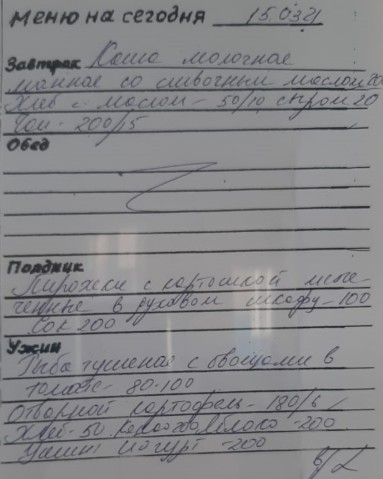 Меню на сегодня 15.03.21
Завтрак Каша молочная
манная со сливочным маслом 200
Хлеб с маслом - 50/10 сыром 20
Чай - 200/15
Обед
Полдник
Пирожки с картошкой испе-
ченные в духовом шкафу - 100
Сок 200
Ужин
Рыба тушеная с овощами в
томате - 80-100
Отварной картофель - 180/6
Хлеб - 50 -200
йогурт - 200